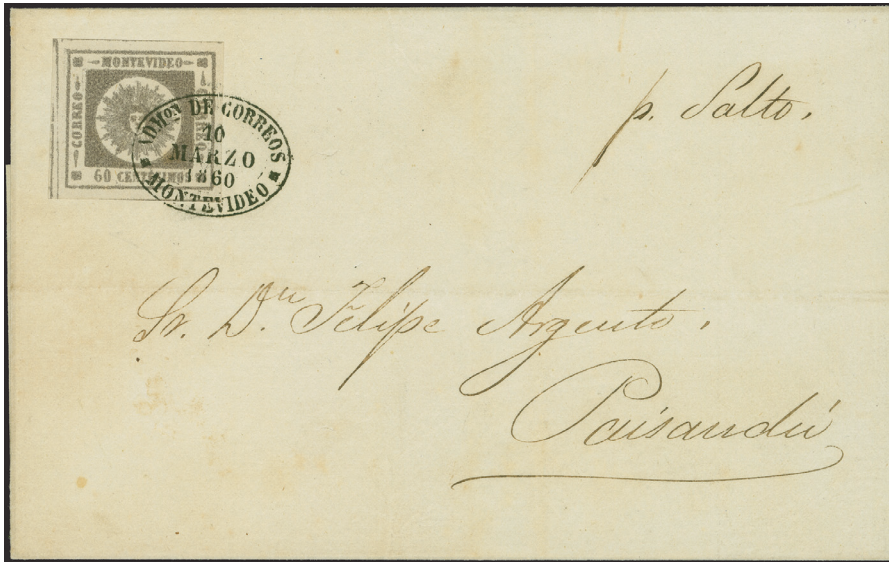 MONTEVIDEO
CORREO
CORREO
60 CENTÉSIMOS
ADMON DE CORREOS
10
MARZO
1860
MONTEVIDEO
p. Salto.
Sr. Dn. Felipe Argento.
Paisandú